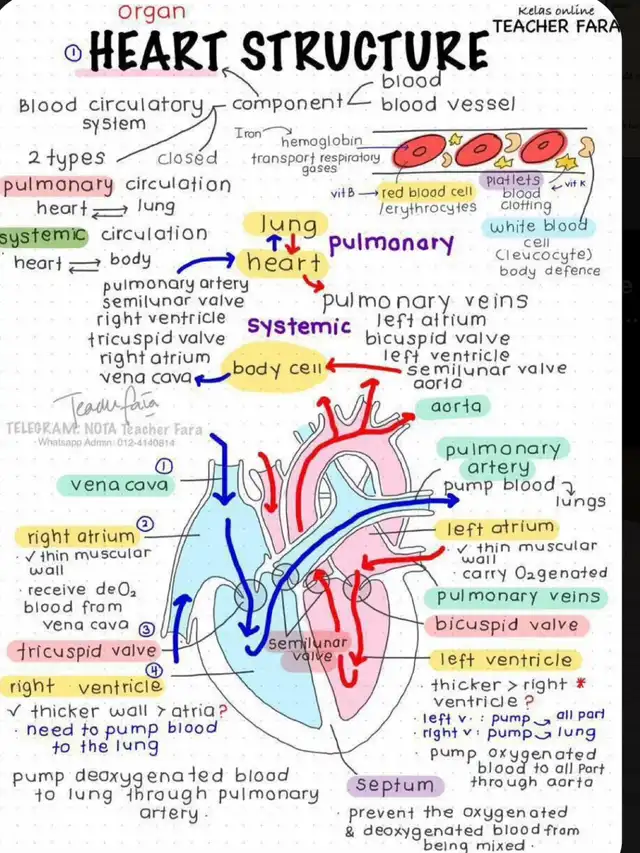 organ
Kelas online
TEACHER FARA
① HEART STRUCTURE
Blood circulatory system
component
blood
blood vessel
2 types
closed
pulmonary circulation
heart ⇌ lung
systemic circulation
heart ⇌ body
Iron
hemoglobin
transport respiratory
gases
vit B → red blood cell
/erythrocytes
platlets
blood
clotting
← vit K
white blood
cell
(leucocyte)
body defence
lung
heart
pulmonary
pulmonary artery
semilunar valve
right ventricle
tricuspid valve
right atrium
vena cava
systemic
body cell
pulmonary veins
left atrium
bicuspid valve
left ventricle
semilunar valve
aorta
Teacher Fara
TELEGRAM: NOTA Teacher Fara
Whatsapp Admin: 012-4140814
① vena cava
② right atrium
✓ thin muscular
wall
· receive deO₂
blood from
vena cava
③ tricuspid valve
④ right ventricle
✓ thicker wall > atria?
· need to pump blood
to the lung
pump deoxygenated blood
to lung through pulmonary
artery.
semilunar
valve
aorta
pulmonary
artery
pump blood
lungs
left atrium
✓ thin muscular
wall
· carry O₂genated
pulmonary veins
bicuspid valve
left ventricle
thicker > right *
ventricle ?
· left v. : pump → all part
· right v : pump → lung
· pump oxygenated
blood to all part
through aorta
septum
· prevent the oxygenated
& deoxygenated blood from
being mixed.